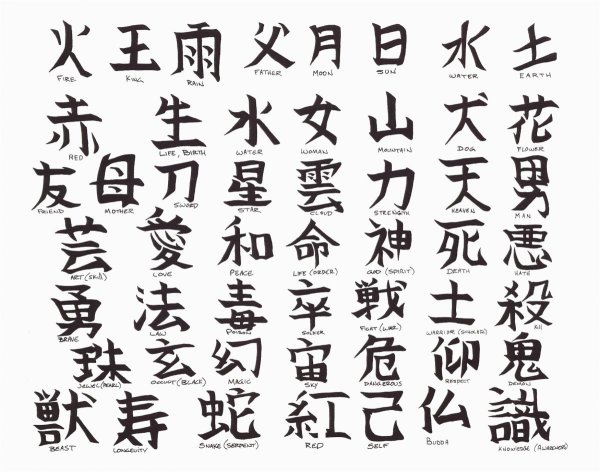 火 王 雨 父 月 日 水 土
FIRE KING RAIN FATHER MOON SUN WATER EARTH
赤 生 水 女 山 犬 花
RED LIFE, BIRTH WATER WOMAN MOUNTAIN DOG FLOWER
友 母 刀 星 雲 力 天 男
FRIEND MOTHER SWORD STAR CLOUD STRENGTH HEAVEN MAN
芸 愛 和 命 神 死 悪
ART (SKILL) LOVE PEACE LIFE (ORDER) GOD (SPIRIT) DEATH HATH
勇 法 毒 卒 戦 士 殺
BRAVE LAW POISON SOLDIER FIGHT (WAR) WARRIOR (SCHOLAR) KILL
珠 玄 幻 宙 危 仰 鬼
JEWEL (PEARL) OCCULT (BLACK) MAGIC SKY DANGEROUS RESPECT DEMON
獣 寿 蛇 紅 己 仏 識
BEAST LONGEVITY SNAKE (SERPENT) RED SELF BUDDA KNOWLEDGE (AWARENESS)